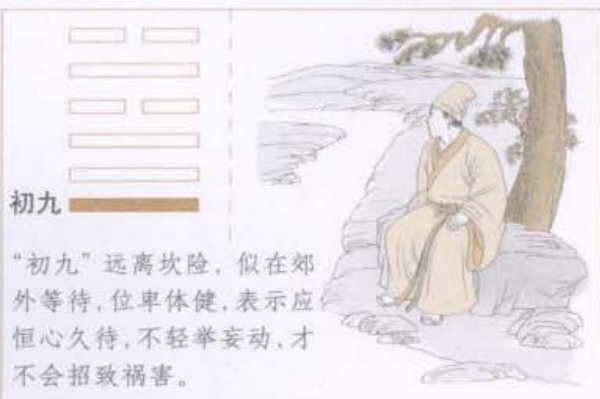 初九
“初九”远离坎险，似在郊
外等待，位卑体健，表示应
恒心久待，不轻举妄动，才
不会招致祸害。